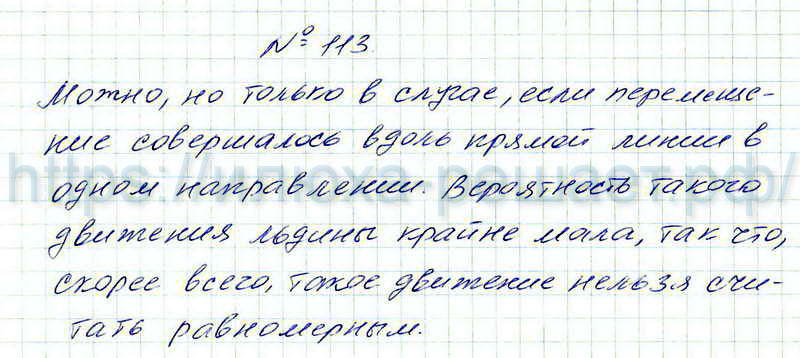 № 113.
Можно, но только в случае, если перемеще-
ние совершалось вдоль прямой линии в
одном направлении. Вероятность такого
движения льдины крайне мала, так что,
скорее всего, такое движение нельзя счи-
тать равномерным.